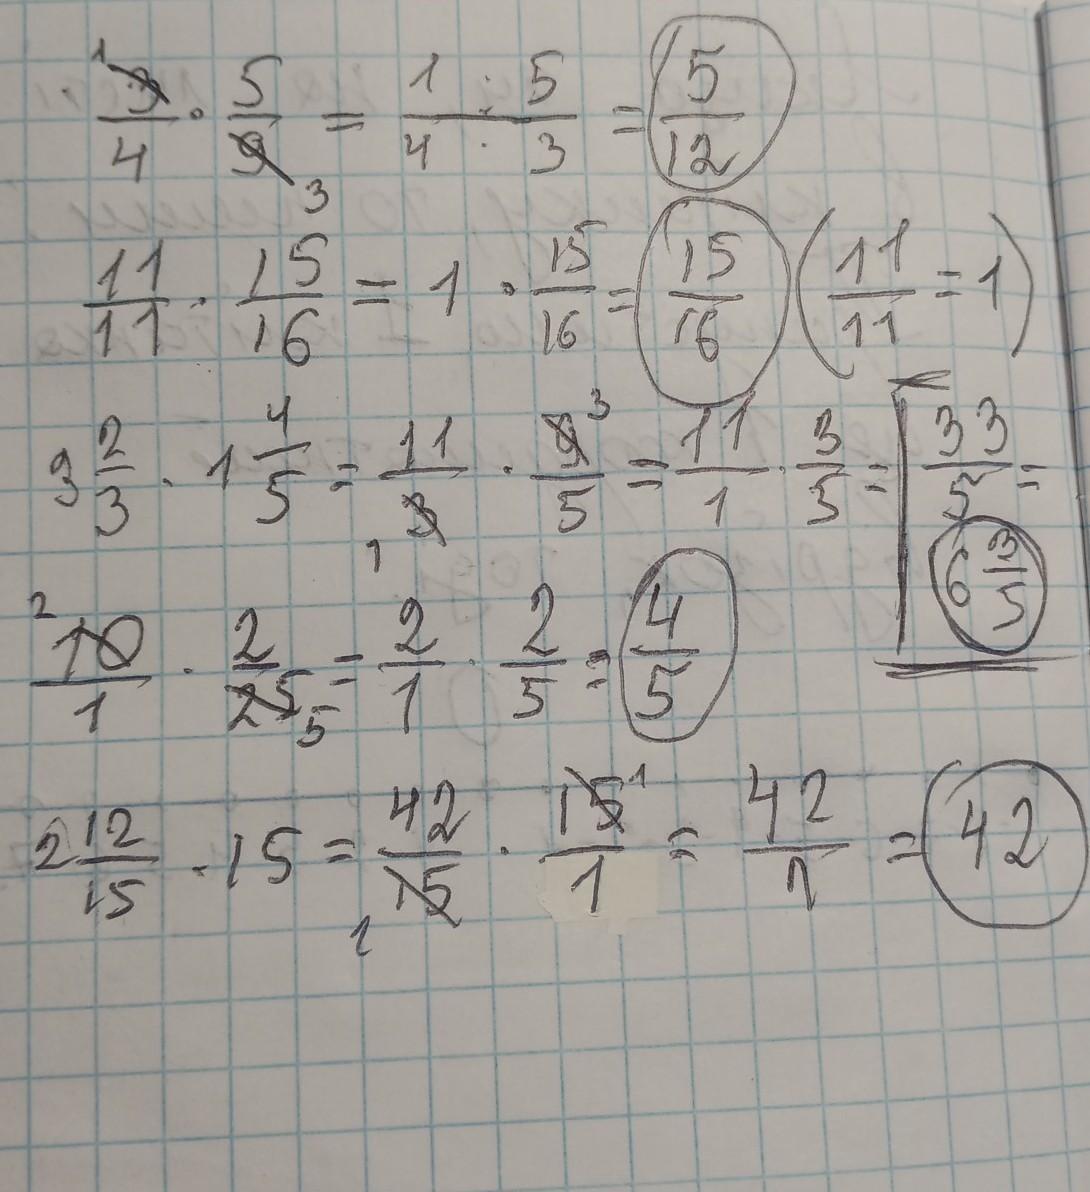 3/4 · 5/9 3 = 1 · 5 / 4 · 3 = 5/12
11/11 · 15/16 = 1 · 15/16 = 15/16 (11/11 = 1)
3 2/3 · 1 4/5 = 11/3 · 9/5 = 11/1 · 3/5 = 33/5 = 6 3/5
10/1 · 2/25 = 2/1 · 2/5 = 4/5
2 12/15 · 15 = 42/15 · 15/1 = 42/1 = 42